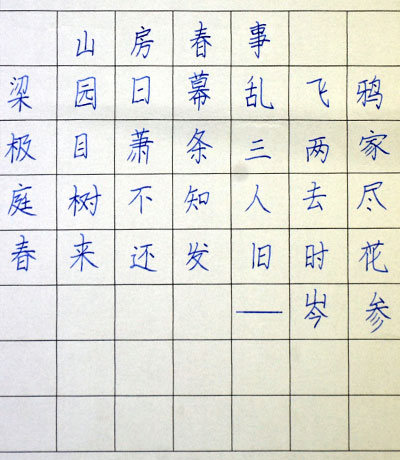 山房春事
梁园日幕乱飞鸦
极目萧条三两家
庭树不知人去尽
春来还发旧时花
——岑参